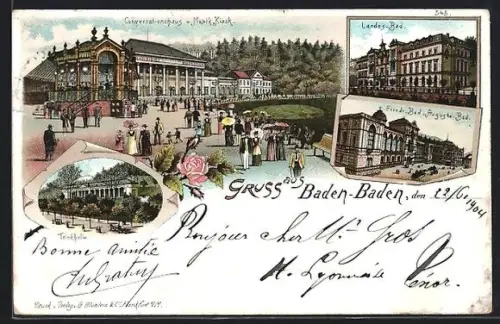 Conversationshaus u. Musik Kiosk.
548.
Landes-Bad.
Friedr. Bad u. Augusta-Bad.
Trinkhalle
Gruss aus
Baden-Baden, den 22/6 1904
Bonjour cher Mr Gros
Bonne amitié
H. Lyonnais
Ténor.
Druck u. Verlag
Frankfurt a/M.